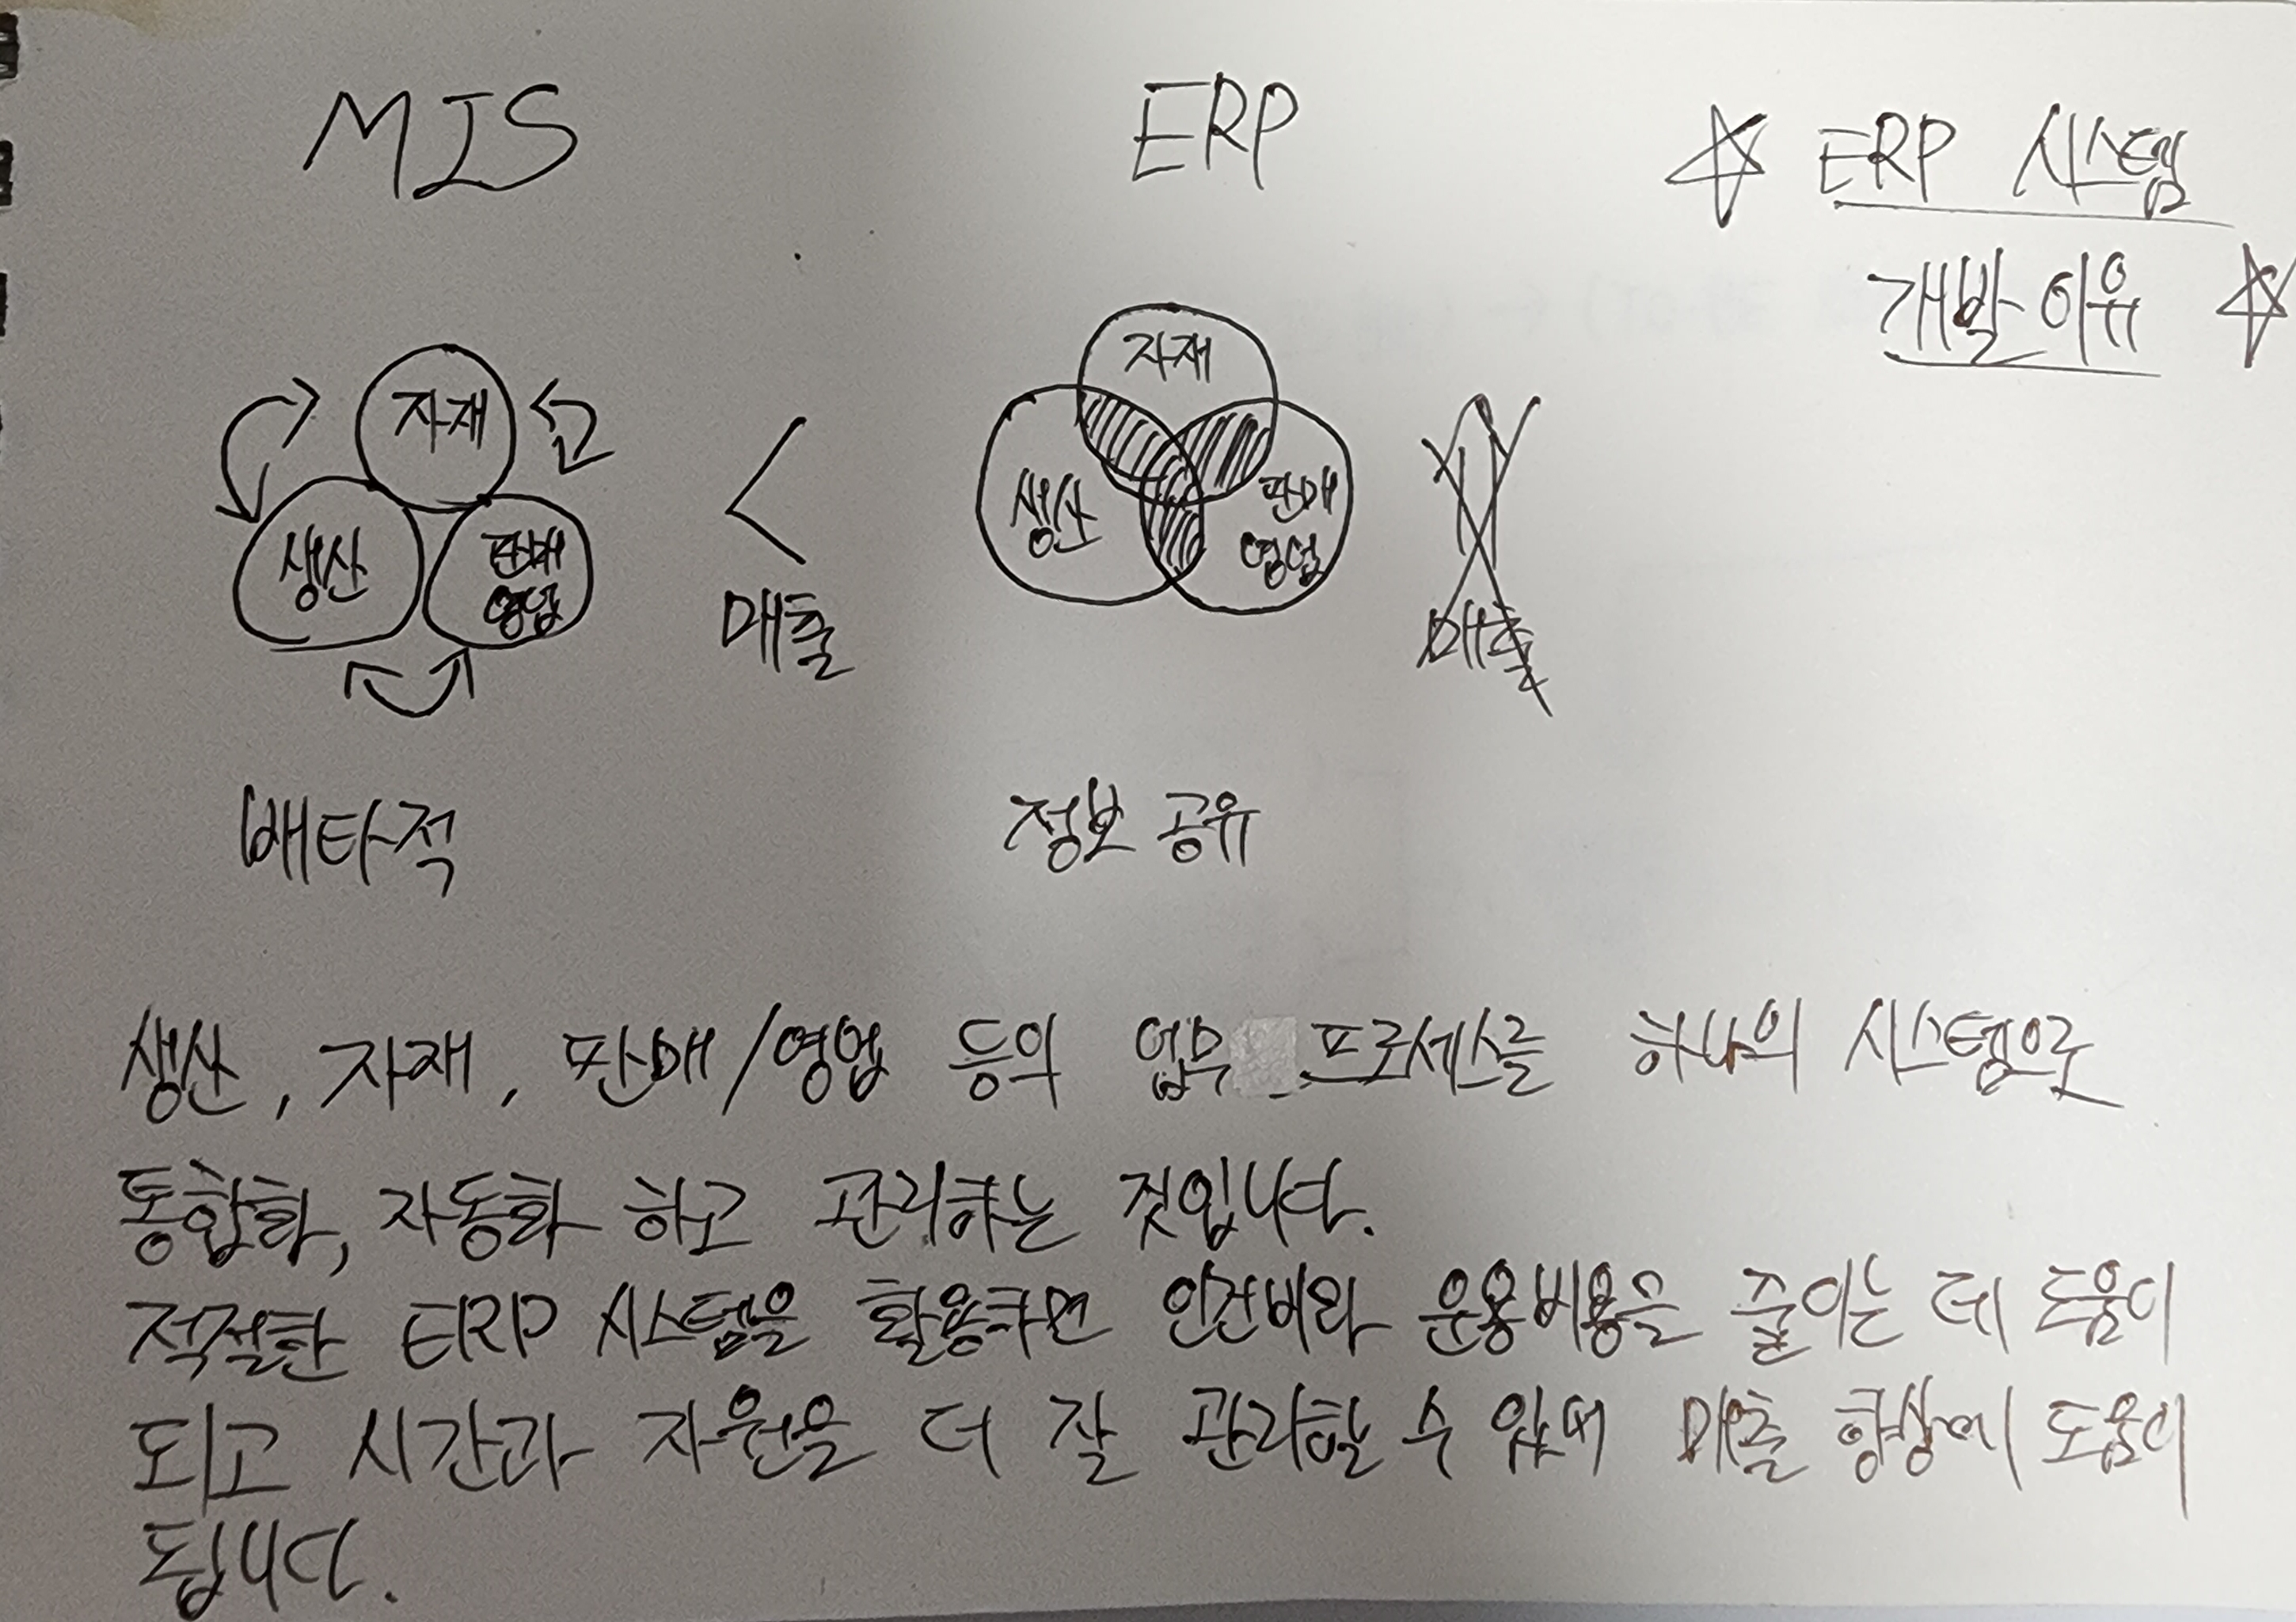 MIS
ERP
☆ ERP 시스템
개발 이유 ☆
자재
생산
판매
영업
<
매출
자재
생산
판매
영업
매출
배타적
정보 공유
생산, 자재, 판매/영업 등의 업무 프로세스를 하나의 시스템으로
통합화, 자동화 하고 관리하는 것입니다.
적절한 ERP 시스템을 활용하면 인건비와 운용비용을 줄이는 데 도움이
되고 시간과 자원을 더 잘 관리할 수 있어 매출 향상에 도움이
됩니다.